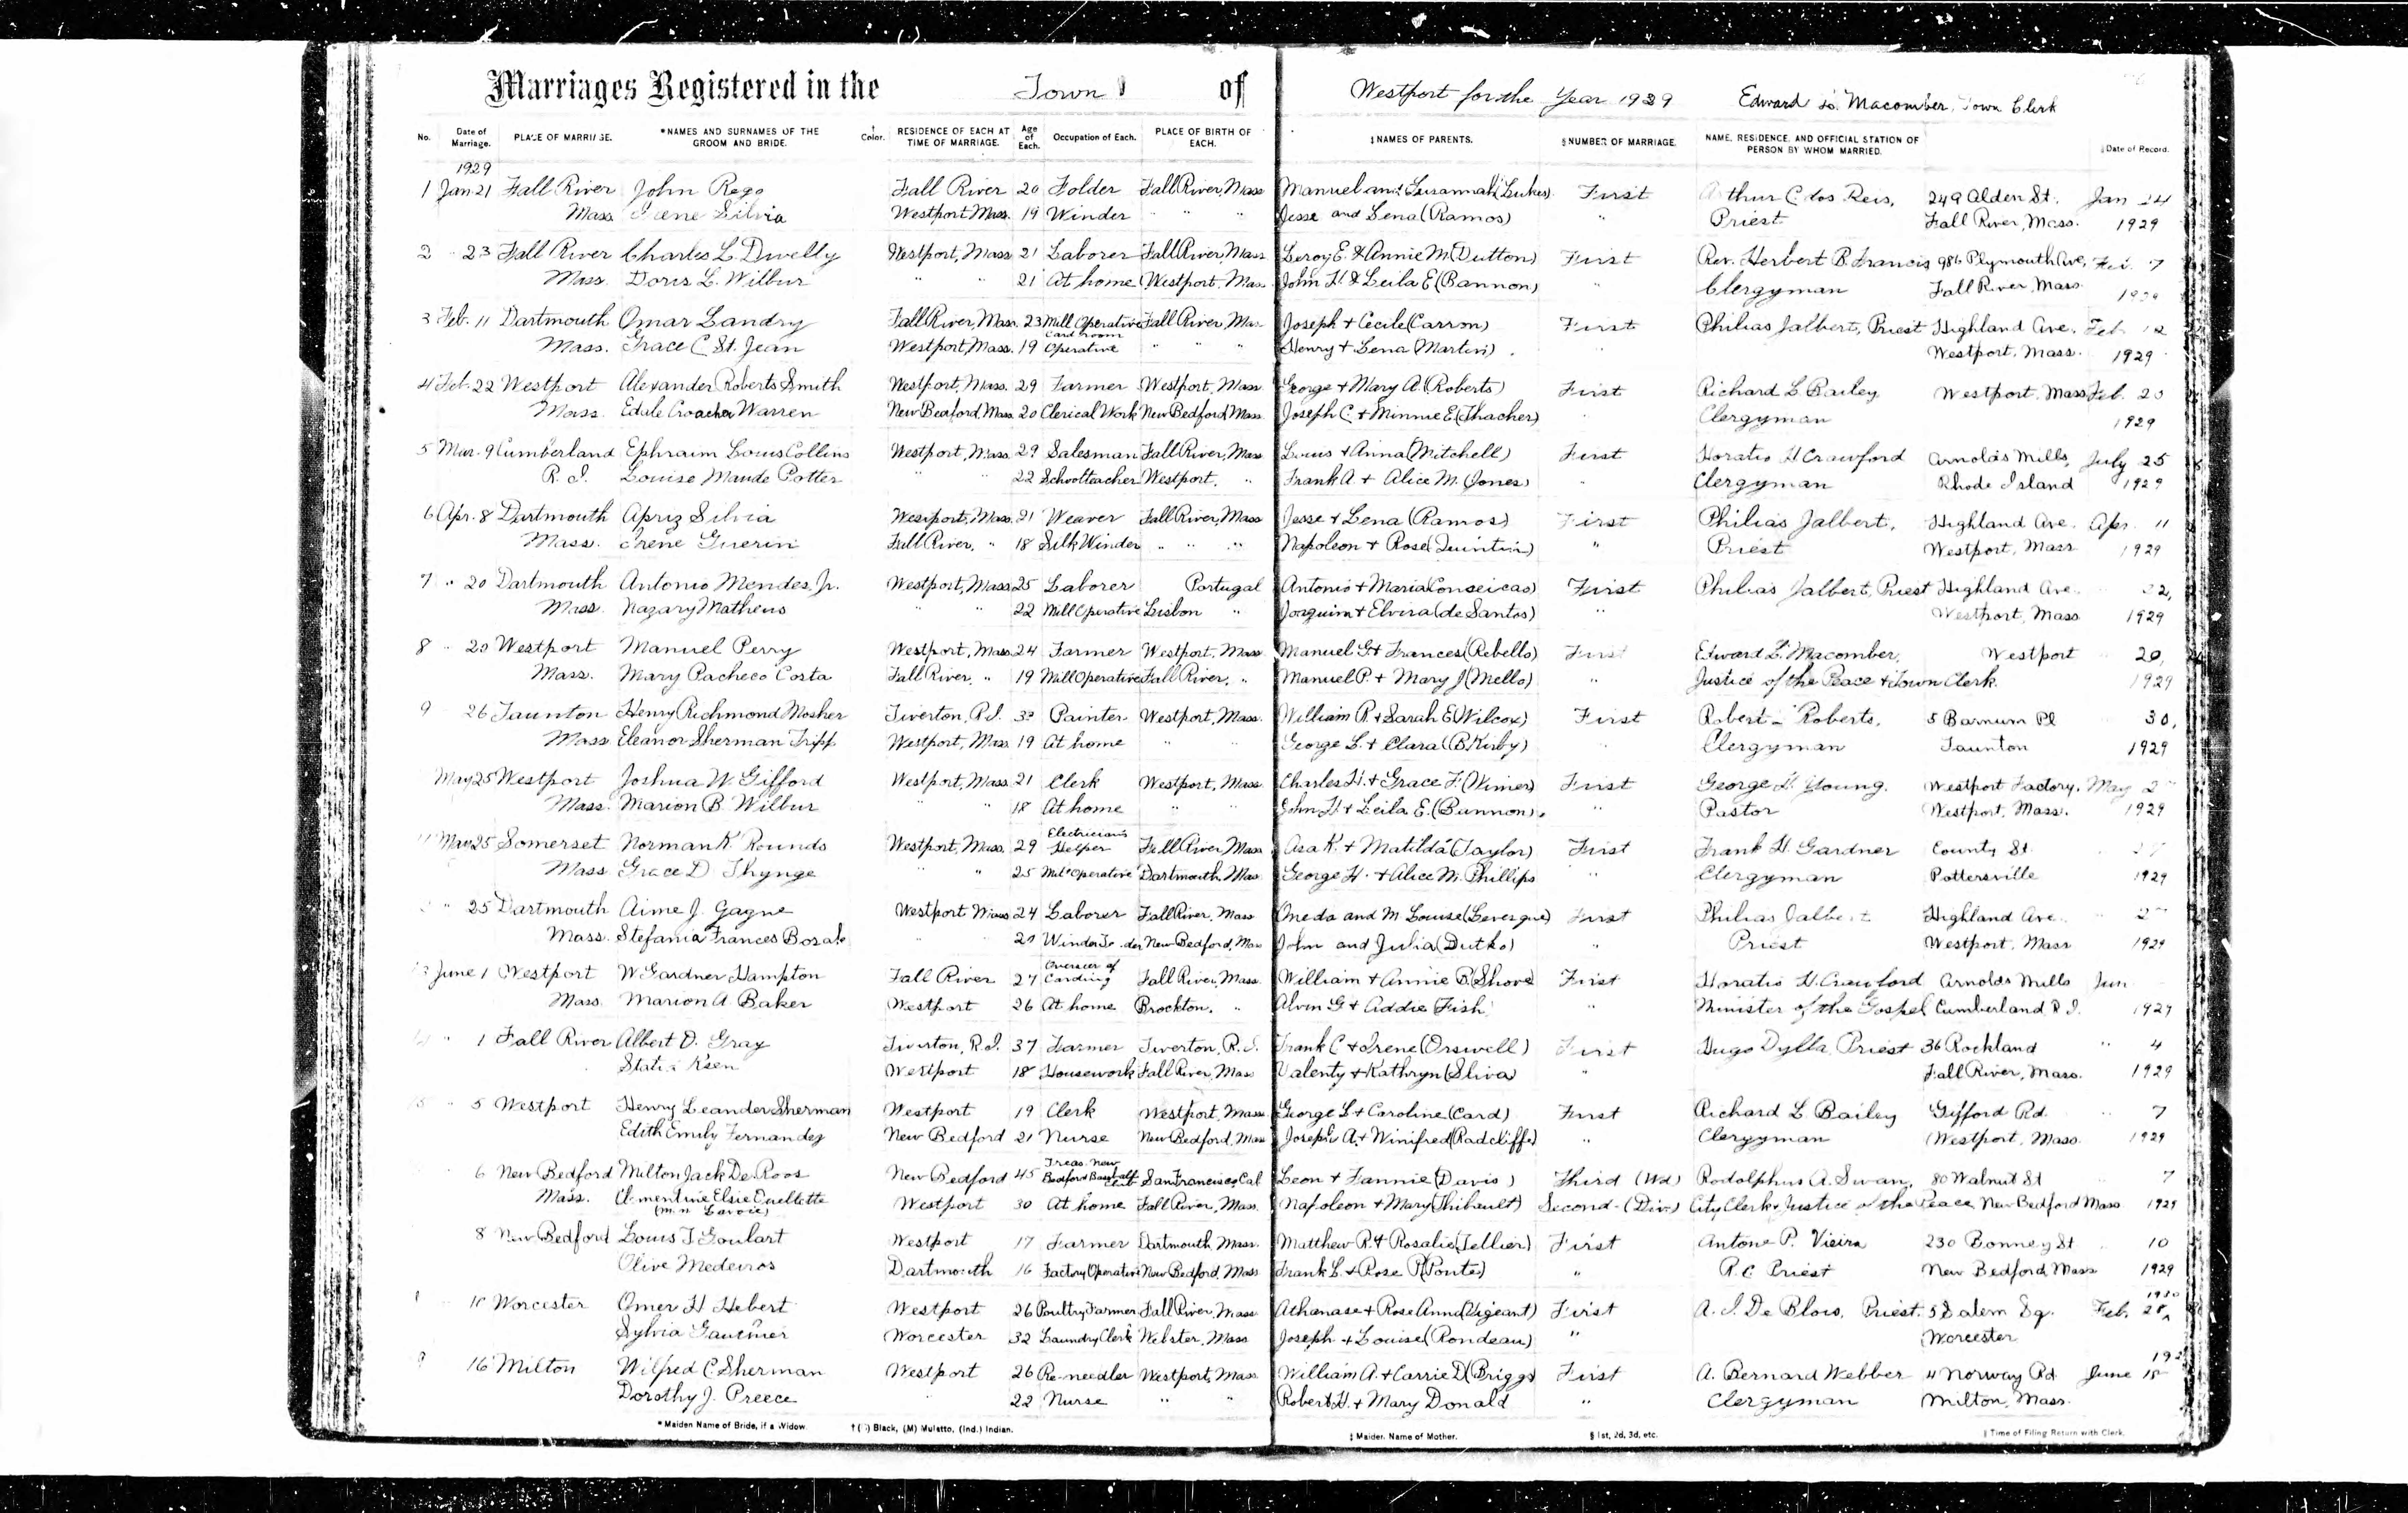 Marriages Registered in the Town of Westport for the Year 1929 Edward L. Macomber, Town Clerk
No. Date of Marriage. PLACE OF MARRIAGE. *NAMES AND SURNAMES OF THE GROOM AND BRIDE. † Color. RESIDENCE OF EACH AT TIME OF MARRIAGE. Age of Each. Occupation of Each. PLACE OF BIRTH OF EACH. ‡NAMES OF PARENTS. §NUMBER OF MARRIAGE. NAME, RESIDENCE, AND OFFICIAL STATION OF PERSON BY WHOM MARRIED. ‖Date of Record.
1929
1 Jan 21 Fall River John Rego Fall River 20 Folder Fall River, Mass Manuel and Susannah (Lukes) First Arthur C. dos Reis, 249 Alden St. Jan 24
Mass Irene Silvia Westport Mass. 19 Winder " " Jesse and Lena (Ramos) " Priest Fall River, Mass. 1929
2 " 23 Fall River Charles L. Dwelly Westport, Mass 21 Laborer Fall River, Mass Leroy E. & Annie M (Dutton) First Rev. Herbert B. Francis 986 Plymouth Ave, Feb. 7
Mass. Doris L. Wilbur " " 21 At home Westport, Mass John H. & Leila E (Bannon) " Clergyman Fall River, Mass 1929
3 Feb. 11 Dartmouth Omar Landry Fall River, Mass. 23 Mill Operative Fall River, Mass Joseph + Cecile (Carron) First Philias Jalbert, Priest Highland Ave. Feb. 12
Mass. Grace C St. Jean Westport, Mass. 19 Card room Operative " " " Henry + Lena (Martin) " Westport, Mass. 1929
4 Feb. 22 Westport Alexander Roberts Smith Westport, Mass. 29 Farmer Westport, Mass George + Mary A. (Roberts) First Richard L Bailey Westport, Mass Feb. 23
Mass. Warren New Bedford, Mass. 20 Clerical Work New Bedford, Mass Joseph C. + Minnie E. (Thacher) Clergyman 1929
5 Mar. 9 Cumberland Ephraim Louis Collins Westport, Mass. 29 Salesman Fall River, Mass Louis + Anna (Mitchell) First Horatio H Crawford Arnolds Mills, July 25
R. I. Louise Maude Potter " " 22 Schoolteacher Westport, " Frank A. + Alice M. (Jones) " Clergyman Rhode Island 1929
6 Apr. 8 Dartmouth Apriz Silvia Westport, Mass. 21 Weaver Fall River, Mass Jesse + Lena (Ramos) First Philias Jalbert, Highland Ave. Apr. 11
Mass. Irene Guerin Fall River, " 18 Silk Winder " " " Napoleon + Rose (Quintin) " Priest Westport, Mass 1929
7 " 20 Dartmouth Antonio Mendes, Jr. Westport, Mass 25 Laborer Portugal Antonio + Maria (Conseicao) First Philias Jalbert, Priest Highland Ave. " 22,
Mass. Nazary Matheus " " 22 Mill Operative Lisbon " Joaquim + Elvira (de Santos) " Westport, Mass 1929
8 " 20 Westport Manuel Perry Westport, Mass 24 Farmer Westport, Mass Manuel G + Frances (Rebello) First Edward L. Macomber, Westport " 20,
Mass. Mary Pacheco Costa Fall River, " 19 Mill Operative Fall River, " Manuel P. + Mary J (Mello) " Justice of the Peace + Town Clerk. 1929
9 " 26 Taunton Henry Richmond Mosher Tiverton, R.I. Painter Westport, Mass. William R. + Sarah E (Wilcox) First Robert Roberts, 5 Barnum Pl 30,
Mass. Eleanor Sherman Tripp Westport, Mass 19 At home " " George L. + Clara (B. Kirby) Clergyman Taunton 1929
May 25 Westport Joshua W. Gifford Westport, Mass. 21 Clerk Westport, Mass Charles H. + Grace F. (Wimer) First George H. Young. Westport Factory, May
Mass. Marion B. Wilbur " " 18 At home " " John H + Leila E. (Bannon) " Pastor Westport, Mass. 1929
11 May 25 Somerset Norman K. Rounds Westport, Mass. 29 Electrician's Helper Fall River, Mass Asa K. + Matilda (Taylor) First Frank H. Gardner County St. 27
Mass Grace D. Thynge " " 25 Mill Operative Dartmouth, Mass George H. + Alice M. Phillips " Clergyman Pottersville 1929
" 25 Dartmouth Aime J. Gagne Westport Mass 24 Laborer Fall River, Mass Oneda and M. Louise (Levesque) First Philias Jalbert Highland Ave.
Mass. Stefania Frances " 20 Winder New Bedford, Mass John and Julia (Dutko) " Priest Westport, Mass 1929
13 June 1 Westport W. Gardner Hampton Fall River 27 Overseer of Carding Fall River, Mass. William + Annie B. (Shove) First Horatio H. Crawford Arnolds Mills Jun
Mass Marion A. Baker Westport 26 At home Brockton, " Alvin G + Addie (Fish) " Minister of the Gospel Cumberland R.I. 1929
14 " 1 Fall River Albert D. Gray Tiverton, R.I. 37 Farmer Tiverton, R.I. Frank C + Irene (Orswell) First Hugo Dylla, Priest 36 Rockland " 4
Westport 18 Housework Fall River, Mass Valenty + Kathryn (Sliva) " Fall River, Mass. 1929
15 " 5 Westport Henry Leander Sherman Westport 19 Clerk Westport, Mass George L + Caroline (Card) First Richard L Bailey Gifford Rd. " 7
Edith Emily Fernandez New Bedford 21 Nurse New Bedford, Mass Joseph A. + Winifred (Radcliffe) " Clergyman Westport, Mass. 1929
6 New Bedford Milton Jack De Roos New Bedford 45 Treas. New Bedford Baseball Club San Francisco, Cal Leon + Fannie (Davis) Third (Wd) Rodolphus A. Swan, 80 Walnut St 7
Mass. Clementine Elsie Ouellette Westport 30 At home Fall River, Mass. Napoleon + Mary (Thibault) Second - (Div.) City Clerk + Justice of the Peace New Bedford Mass 1929
(m.n. Lavoie)
8 New Bedford Louis J Goulart Westport 17 Farmer Dartmouth, Mass. Matthew R. + Rosalie (Tellier) First Antone P. Vieira 230 Bonney St 10
Olive Medeiros Dartmouth 16 Factory Operative New Bedford, Mass Frank L. + Rose P (Ponte) " R.C. Priest New Bedford, Mass 1929
10 Worcester Omer H Hebert Westport 26 Poultry Farmer Fall River, Mass. Athanase + Rose Anna (Vigeant) First A. I. De Blois, Priest. 5 Salem Sq. Feb. 28, 1930
Sylvia Gauthier Worcester 32 Laundry Clerk Webster, Mass Joseph + Louise (Rondeau) " Worcester
16 Milton Wilfred C. Sherman Westport 26 Re-needler Westport, Mass William A. + Carrie D (Briggs) First A. Bernard Webber 4 Norway Rd June 18
Dorothy J. Preece " 22 Nurse " " Robert H. + Mary Donald " Clergyman Milton, Mass.
* Maiden Name of Bride, if a Widow. † (B) Black, (M) Mulatto, (Ind.) Indian. ‡ Maiden Name of Mother. § 1st, 2d, 3d, etc. ‖ Time of Filing Return with Clerk.